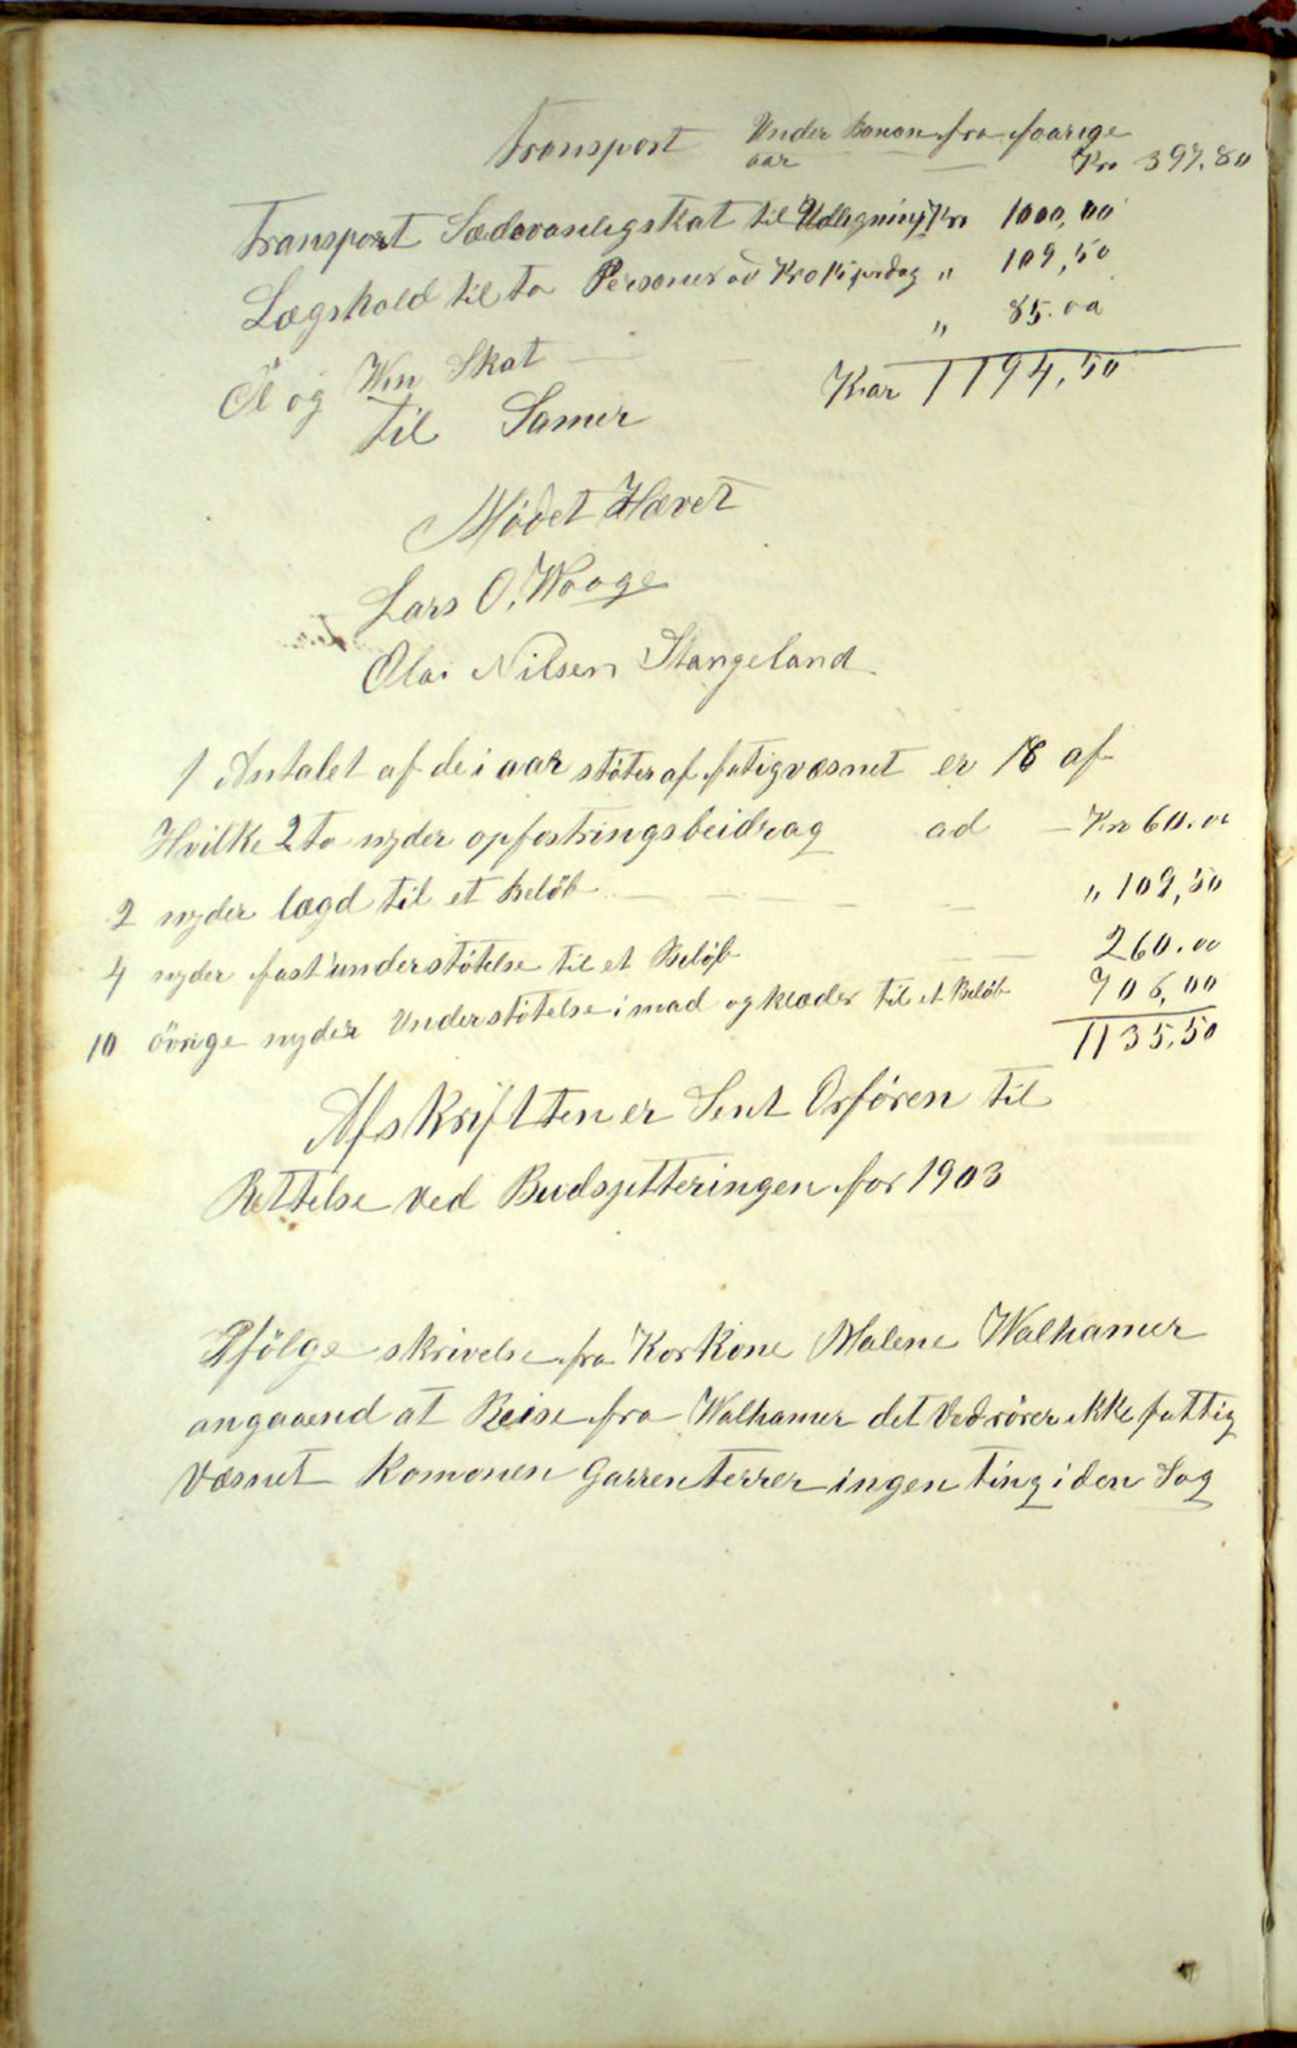 Transport Under Banansfra foarige
aar — Kr 397.80
Transport Sædvanligskat til Udligning Kr 1000,00
Lægshold til to Personer ad Kr o 15 prdag " 109,50
Öl og Win Skat — " 85.00
Til Samer Kar 1194,50
Mödet Hævet
Lars O. Waage
Ola Nilsen Stangeland
1 Antalet af de i aar stöter af fatigvæsnet er 18 af
Hvilke 2 to nyder opfostringsbeidrag ad — Kr 60.00
2 nyder lægd til et Belöb — " 109,50
4 nyder fast understötelse til et Belöb — 260.00
10 övrige nyder Understötelse i mad og klæder til et Belöb 706,00
1135,50
Afskriften er Sent Orfören til
Rettelse ved Budsjetteringen for 1903
Ifölge skrivelse fra Korkone Malene Walhamer
angaaend at Reise fra Walhamer det Vedrörer ikke fattig
Væsnet Komonen Garrenterrer ingen ting i den Sag